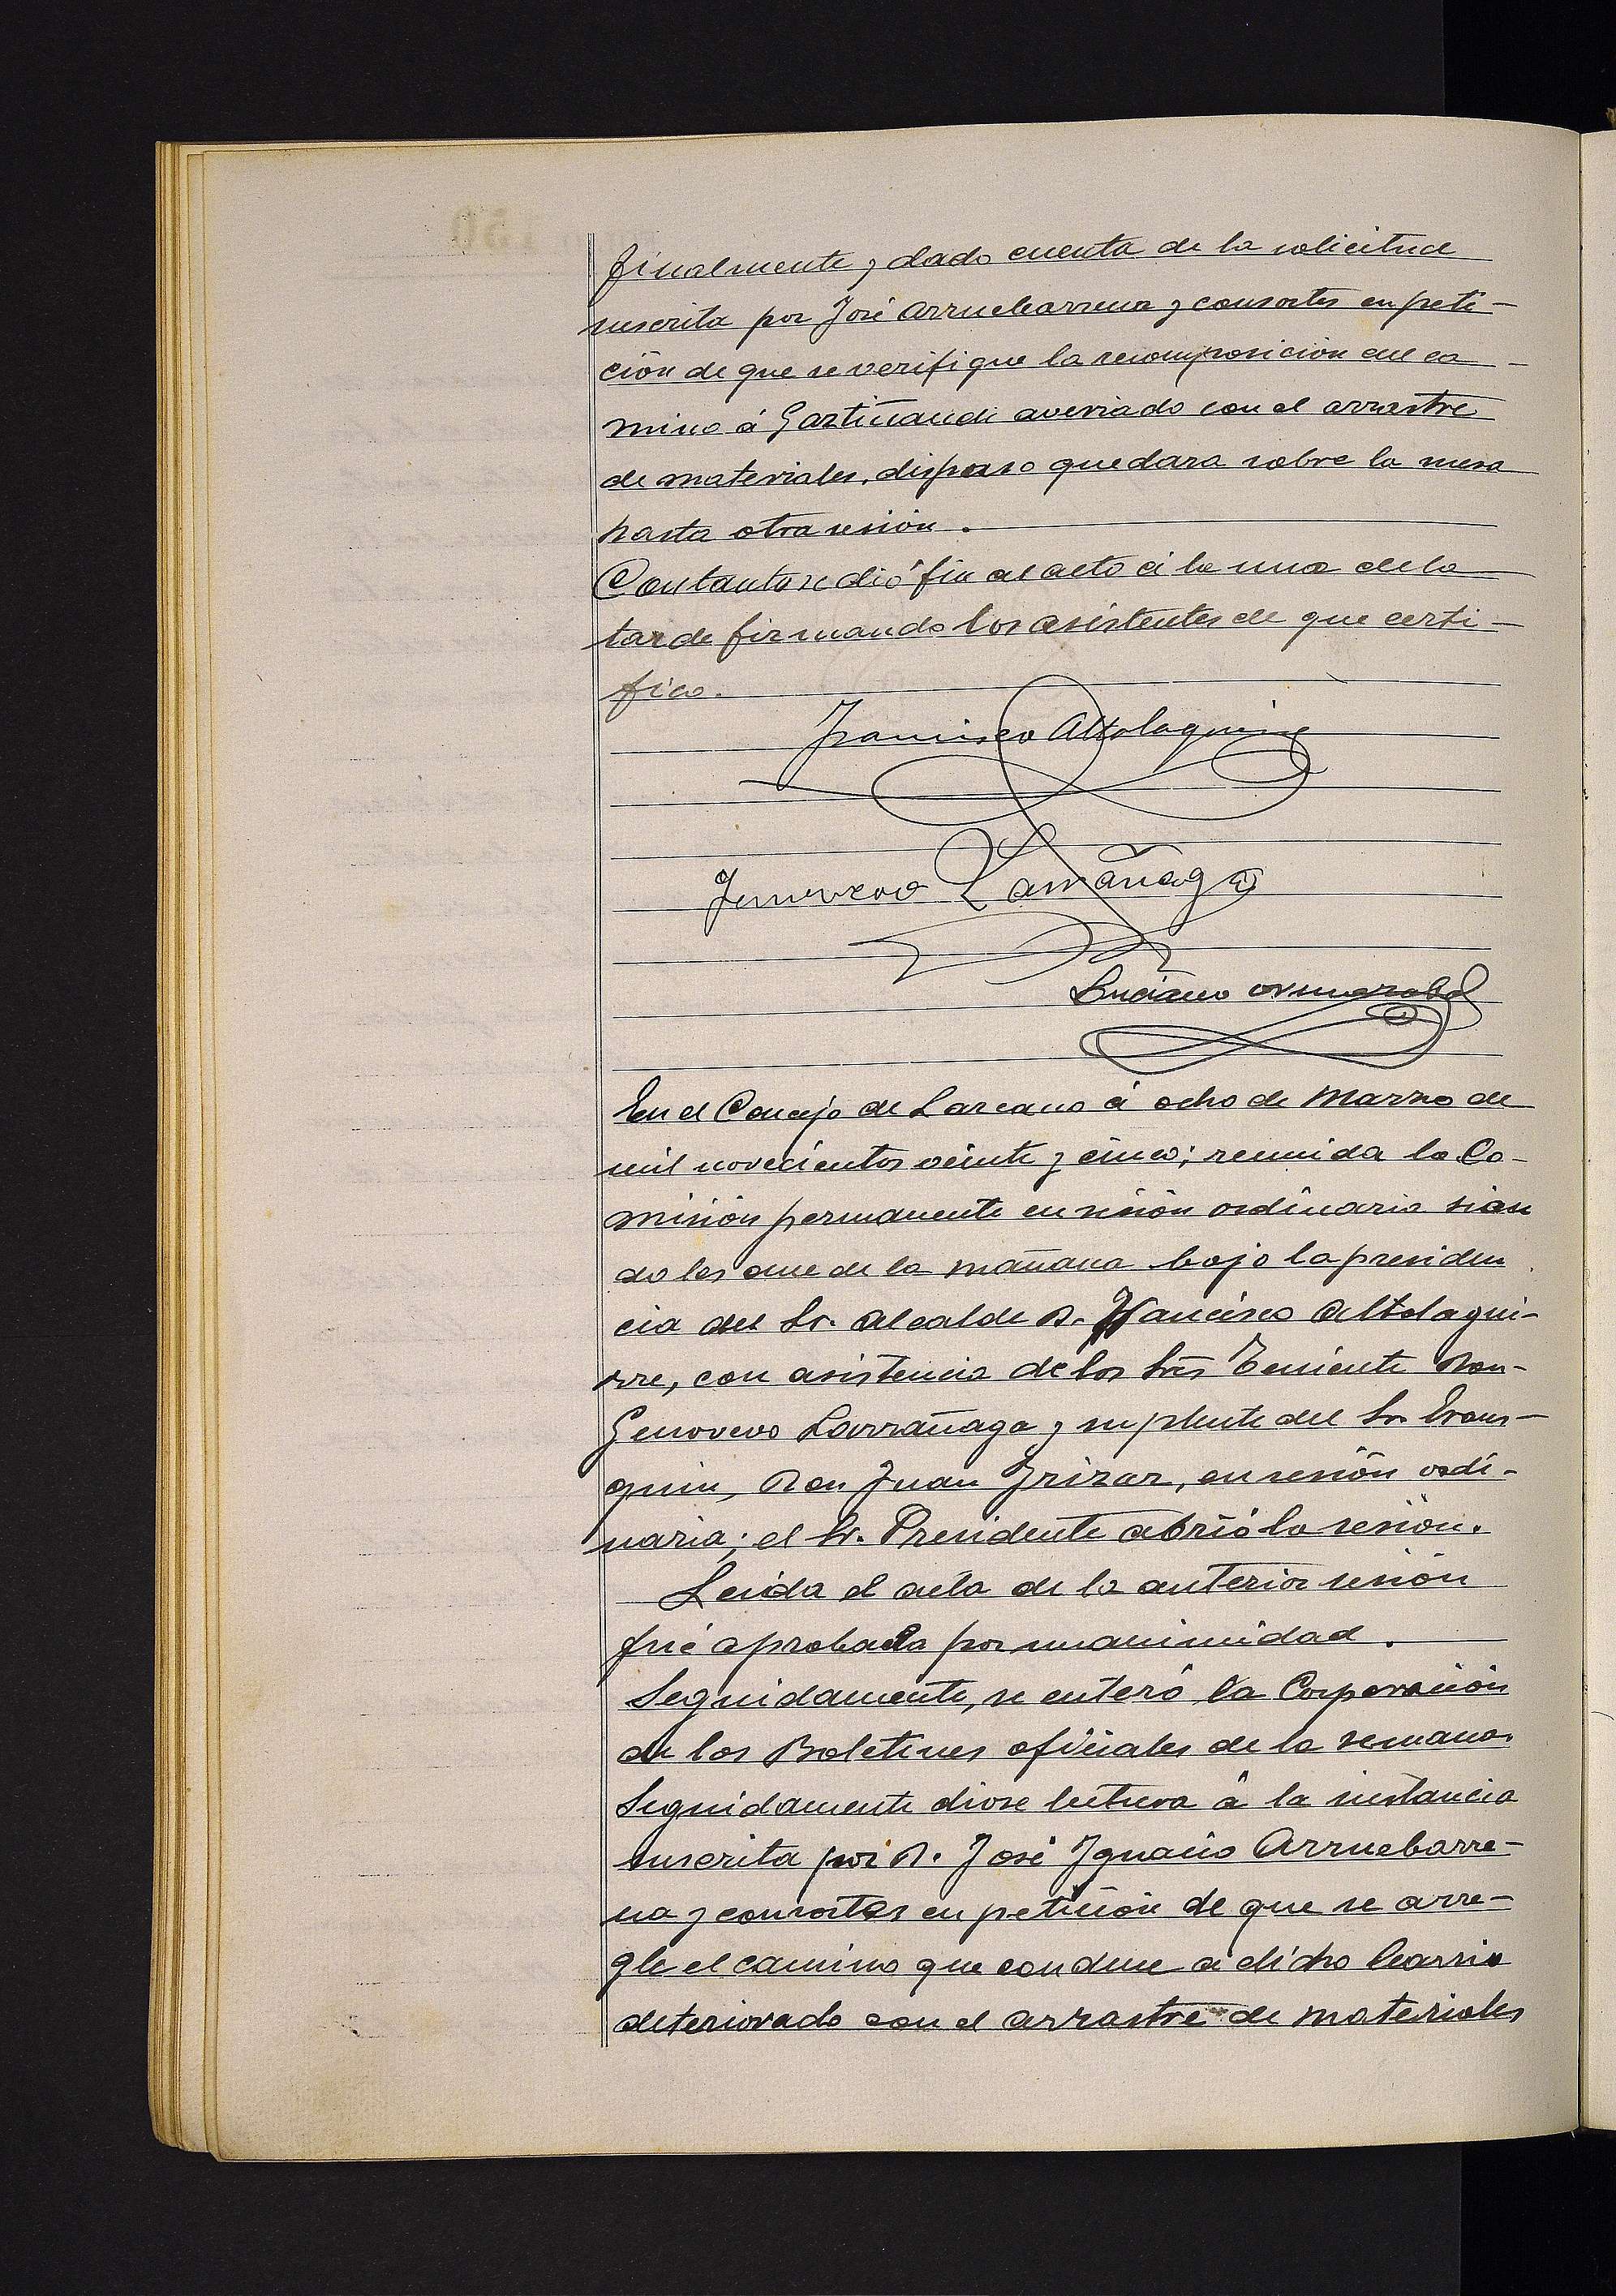 Finalmente, dado cuenta de la solicitud
suscrita por José Arruebarrena y consortes en peti-
ción de que se verifique la recomposición del ca-
mino á Gaztiñandi averiado con el arrastre
de materiales, dispuso quedara sobre la mesa
hasta otra sesión.
Con tanto se dió fin al acto á la una de la
tarde firmando los asistentes de que certi-
fico.
Francisco Altolaguirre
Genoveva Larrañaga
Luciano
En el Concejo de Lazcano á ocho de Marzo de
mil novecientos veinte y cinco; reunida la Co-
misión permanente en sesión ordinaria sien
do las once de la mañana bajo la presiden
cia del Sr. Alcalde D. Francisco Altolagui-
rre, con asistencia de los Srs Teniente Don
Genovevo Larrañaga y suplente del Sr.
quin, Don Juan Irizar, en sesión ordi-
naria; el Sr. Presidente abrió la sesión.
Leida el acta de la anterior sesión
fué aprobada por unanimidad.
Seguidamente, se enteró la Corporación
de los Boletines oficiales de la semana.
Seguidamente diose lectura á la instancia
suscrita por D. José Ignacio Arruebarre-
na y consortes en petición de que se arre-
gle el camino que conduce á dicho barrio
deteriorado con el arrastre de materiales